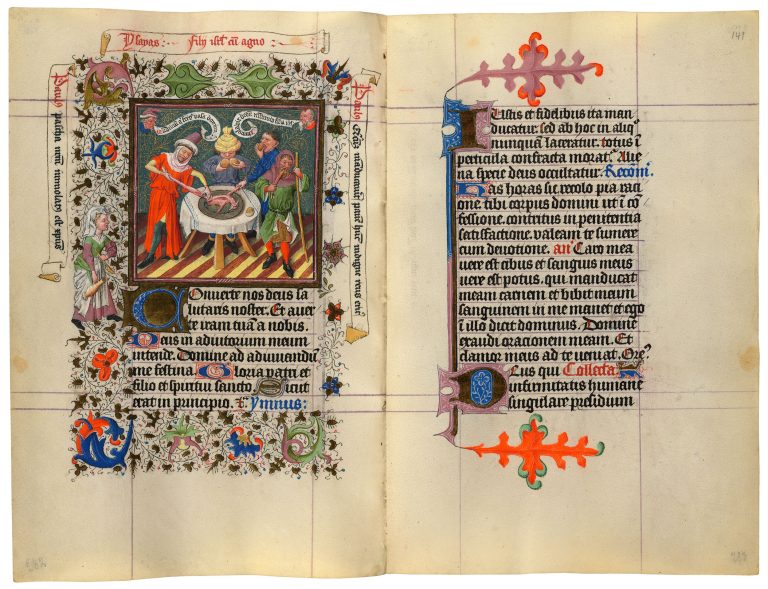 Ysayas: fily isrl cū agno
Conuerte nos deus sa
lutaris noster. Et auer
te iram tuā a nobis.
Deus in adiutorium meum
intende. Domine ad adiuuandū
me festina. Gloria patri et
filio et spiritui sancto. Sicut
erat in principio. Ymnus:
141
Iustis et fidelibus ita man
ducatur. sed ab hoc in aliq°
nunquam laceratur. totus ī
pericula confracta morat. Aue
na specie deus occultatur. Recōm.
Has horas sic recolo pia raci
one. tibi corpus domini ut ī cō
fessione. contritus in penitentia
satisfactione. valeam te sumere
cum deuotione. an Caro mea
vere est cibus et sanguis meus
vere est potus. qui manducat
meam carnem et bibit meum
sanguinem in me manet et ego
in illo dicit dominus. Domine
exaudi orationem meam. Et
clamor meus ad te ueniat. Ore
Deus qui Collecta.
infirmitatis humane
singulare presidium